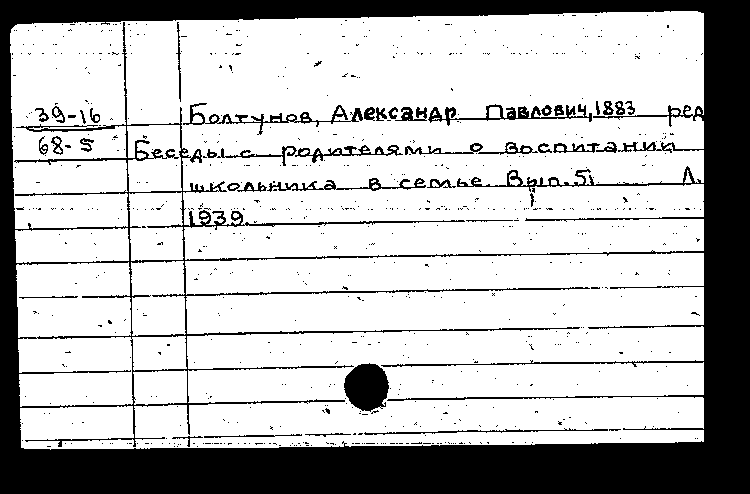 39-16
68-5
Болтунов, Александр Павлович, 1883 ред
Беседы с родителями о воспитании
школьника в семье. Вып. 5 Л.
1939.